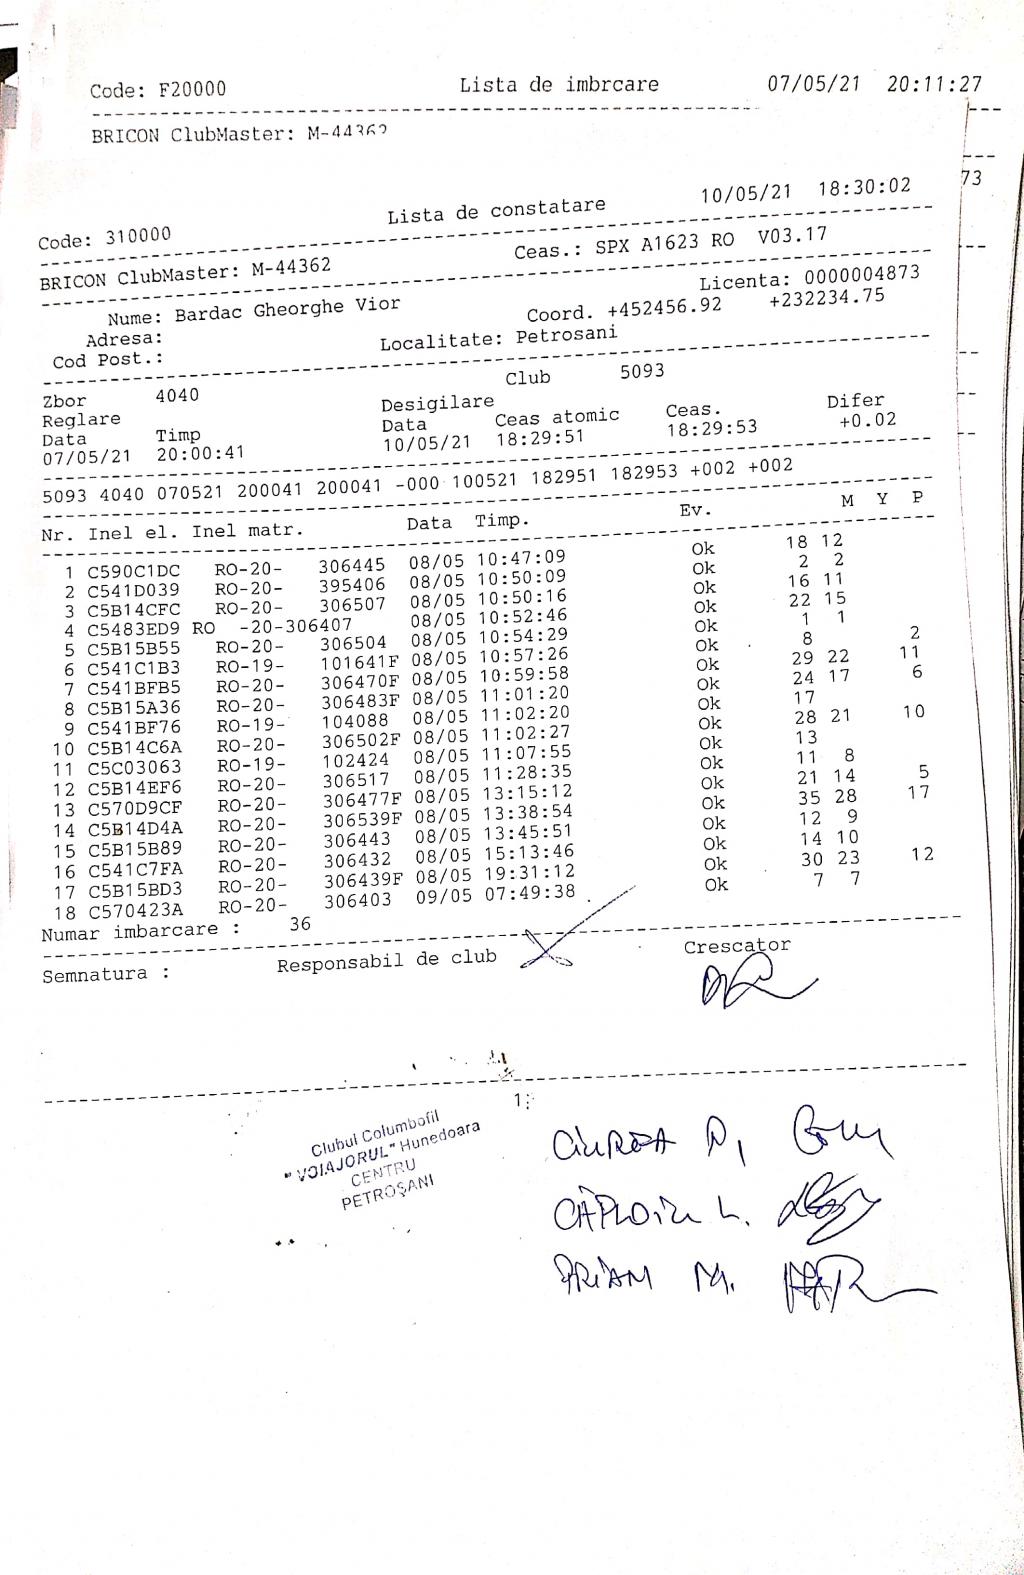 Code: F20000 Lista de imbrcare 07/05/21 20:11:27
BRICON ClubMaster: M-44362
73
Code: 310000 Lista de constatare 10/05/21 18:30:02
BRICON ClubMaster: M-44362 Ceas.: SPX A1623 RO V03.17
Nume: Bardac Gheorghe Vior Licenta: 0000004873
Adresa: Coord. +452456.92 +232234.75
Cod Post.: Localitate: Petrosani
Zbor 4040 Club 5093
Reglare Desigilare
Data Timp Data Ceas atomic Ceas. Difer
07/05/21 20:00:41 10/05/21 18:29:51 18:29:53 +0.02
5093 4040 070521 200041 200041 -000 100521 182951 182953 +002 +002
Nr. Inel el. Inel matr. Data Timp. Ev. M Y P
1 C590C1DC RO-20- 306445 08/05 10:47:09 Ok 18 12
2 C541D039 RO-20- 395406 08/05 10:50:09 Ok 2 2
3 C5B14CFC RO-20- 306507 08/05 10:50:16 Ok 16 11
4 C5483ED9 RO -20-306407 08/05 10:52:46 Ok 22 15
5 C5B15B55 RO-20- 306504 08/05 10:54:29 Ok 1 1
6 C541C1B3 RO-19- 101641F 08/05 10:57:26 Ok 8 2
7 C541BFB5 RO-20- 306470F 08/05 10:59:58 Ok 29 22 11
8 C5B15A36 RO-20- 306483F 08/05 11:01:20 Ok 24 17 6
9 C541BF76 RO-19- 104088 08/05 11:02:20 Ok 17
10 C5B14C6A RO-20- 306502F 08/05 11:02:27 Ok 28 21 10
11 C5C03063 RO-19- 102424 08/05 11:07:55 Ok 13
12 C5B14EF6 RO-20- 306517 08/05 11:28:35 Ok 11 8
13 C570D9CF RO-20- 306477F 08/05 13:15:12 Ok 21 14 5
14 C5B14D4A RO-20- 306539F 08/05 13:38:54 Ok 35 28 17
15 C5B15B89 RO-20- 306443 08/05 13:45:51 Ok 12 9
16 C541C7FA RO-20- 306432 08/05 15:13:46 Ok 14 10
17 C5B15BD3 RO-20- 306439F 08/05 19:31:12 Ok 30 23 12
18 C570423A RO-20- 306403 09/05 07:49:38 Ok 7 7
Numar imbarcare : 36
Semnatura : Responsabil de club Crescator
1
Clubul Columbofil
"VOIAJORUL" Hunedoara
CENTRU
PETROŞANI
CIUREA D,
L.
PRIAM M.